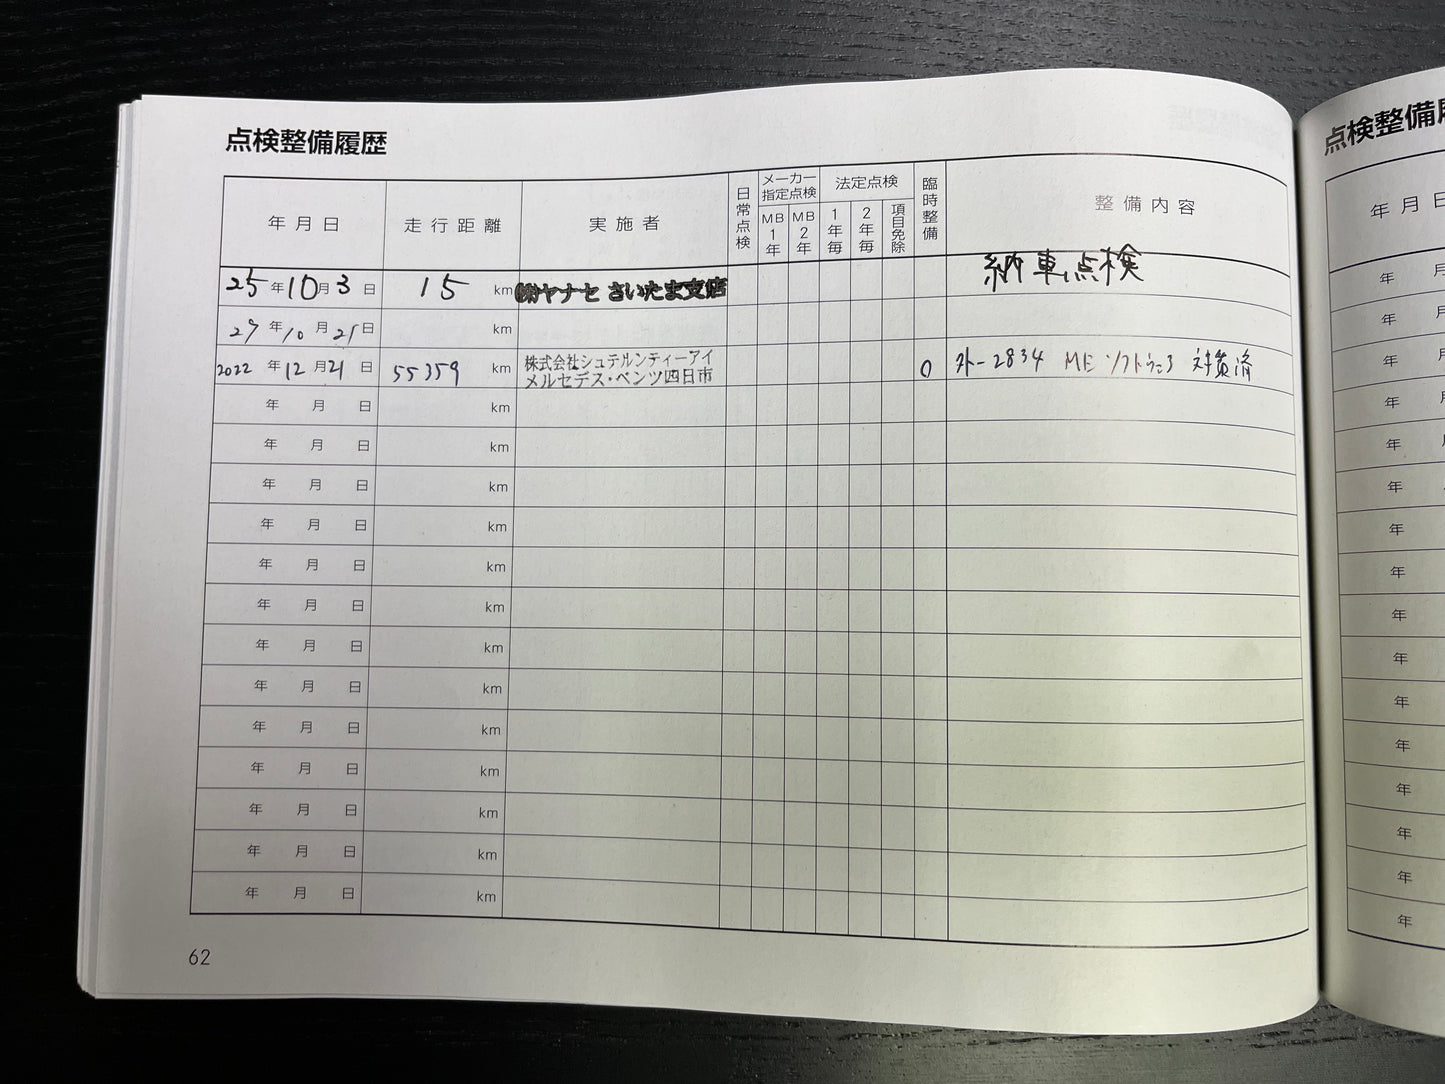 点検整備履歴
年月日 走行距離 実施者 日常点検 メーカー指定点検 MB1年 MB2年 法定点検 1年毎 2年毎 項目免除 臨時整備 整備内容
25年10月3日 15km ㈱ヤナセ さいたま支店 納車点検
27年10月21日 km
2022年12月21日 55359km 株式会社シュテルンティーアイ
メルセデス・ベンツ四日市 0 外-2834 ME ソフトウェア 対策済
年 月 日 km
年 月 日 km
年 月 日 km
年 月 日 km
年 月 日 km
年 月 日 km
年 月 日 km
年 月 日 km
年 月 日 km
年 月 日 km
年 月 日 km
年 月 日 km
年 月 日 km
62
点検整備
年月日
年 月
年 月
年 月
年 月
年 月
年
年
年
年
年
年
年
年
年
年
年